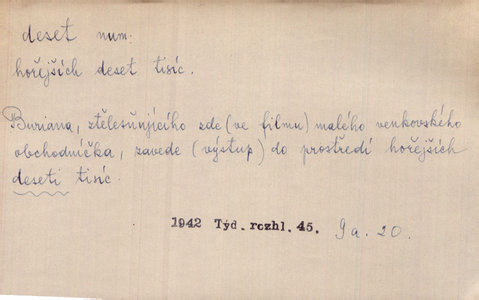 deset num.
hořejších deset tisíc.
Buriana, ztělesňujícího zde (ve filmu) malého venkovského
obchodníčka, zavede (výstup) do prostředí hořejších
deseti tisíc.
1942 Týd. rozhl. 45. 9a. 20.